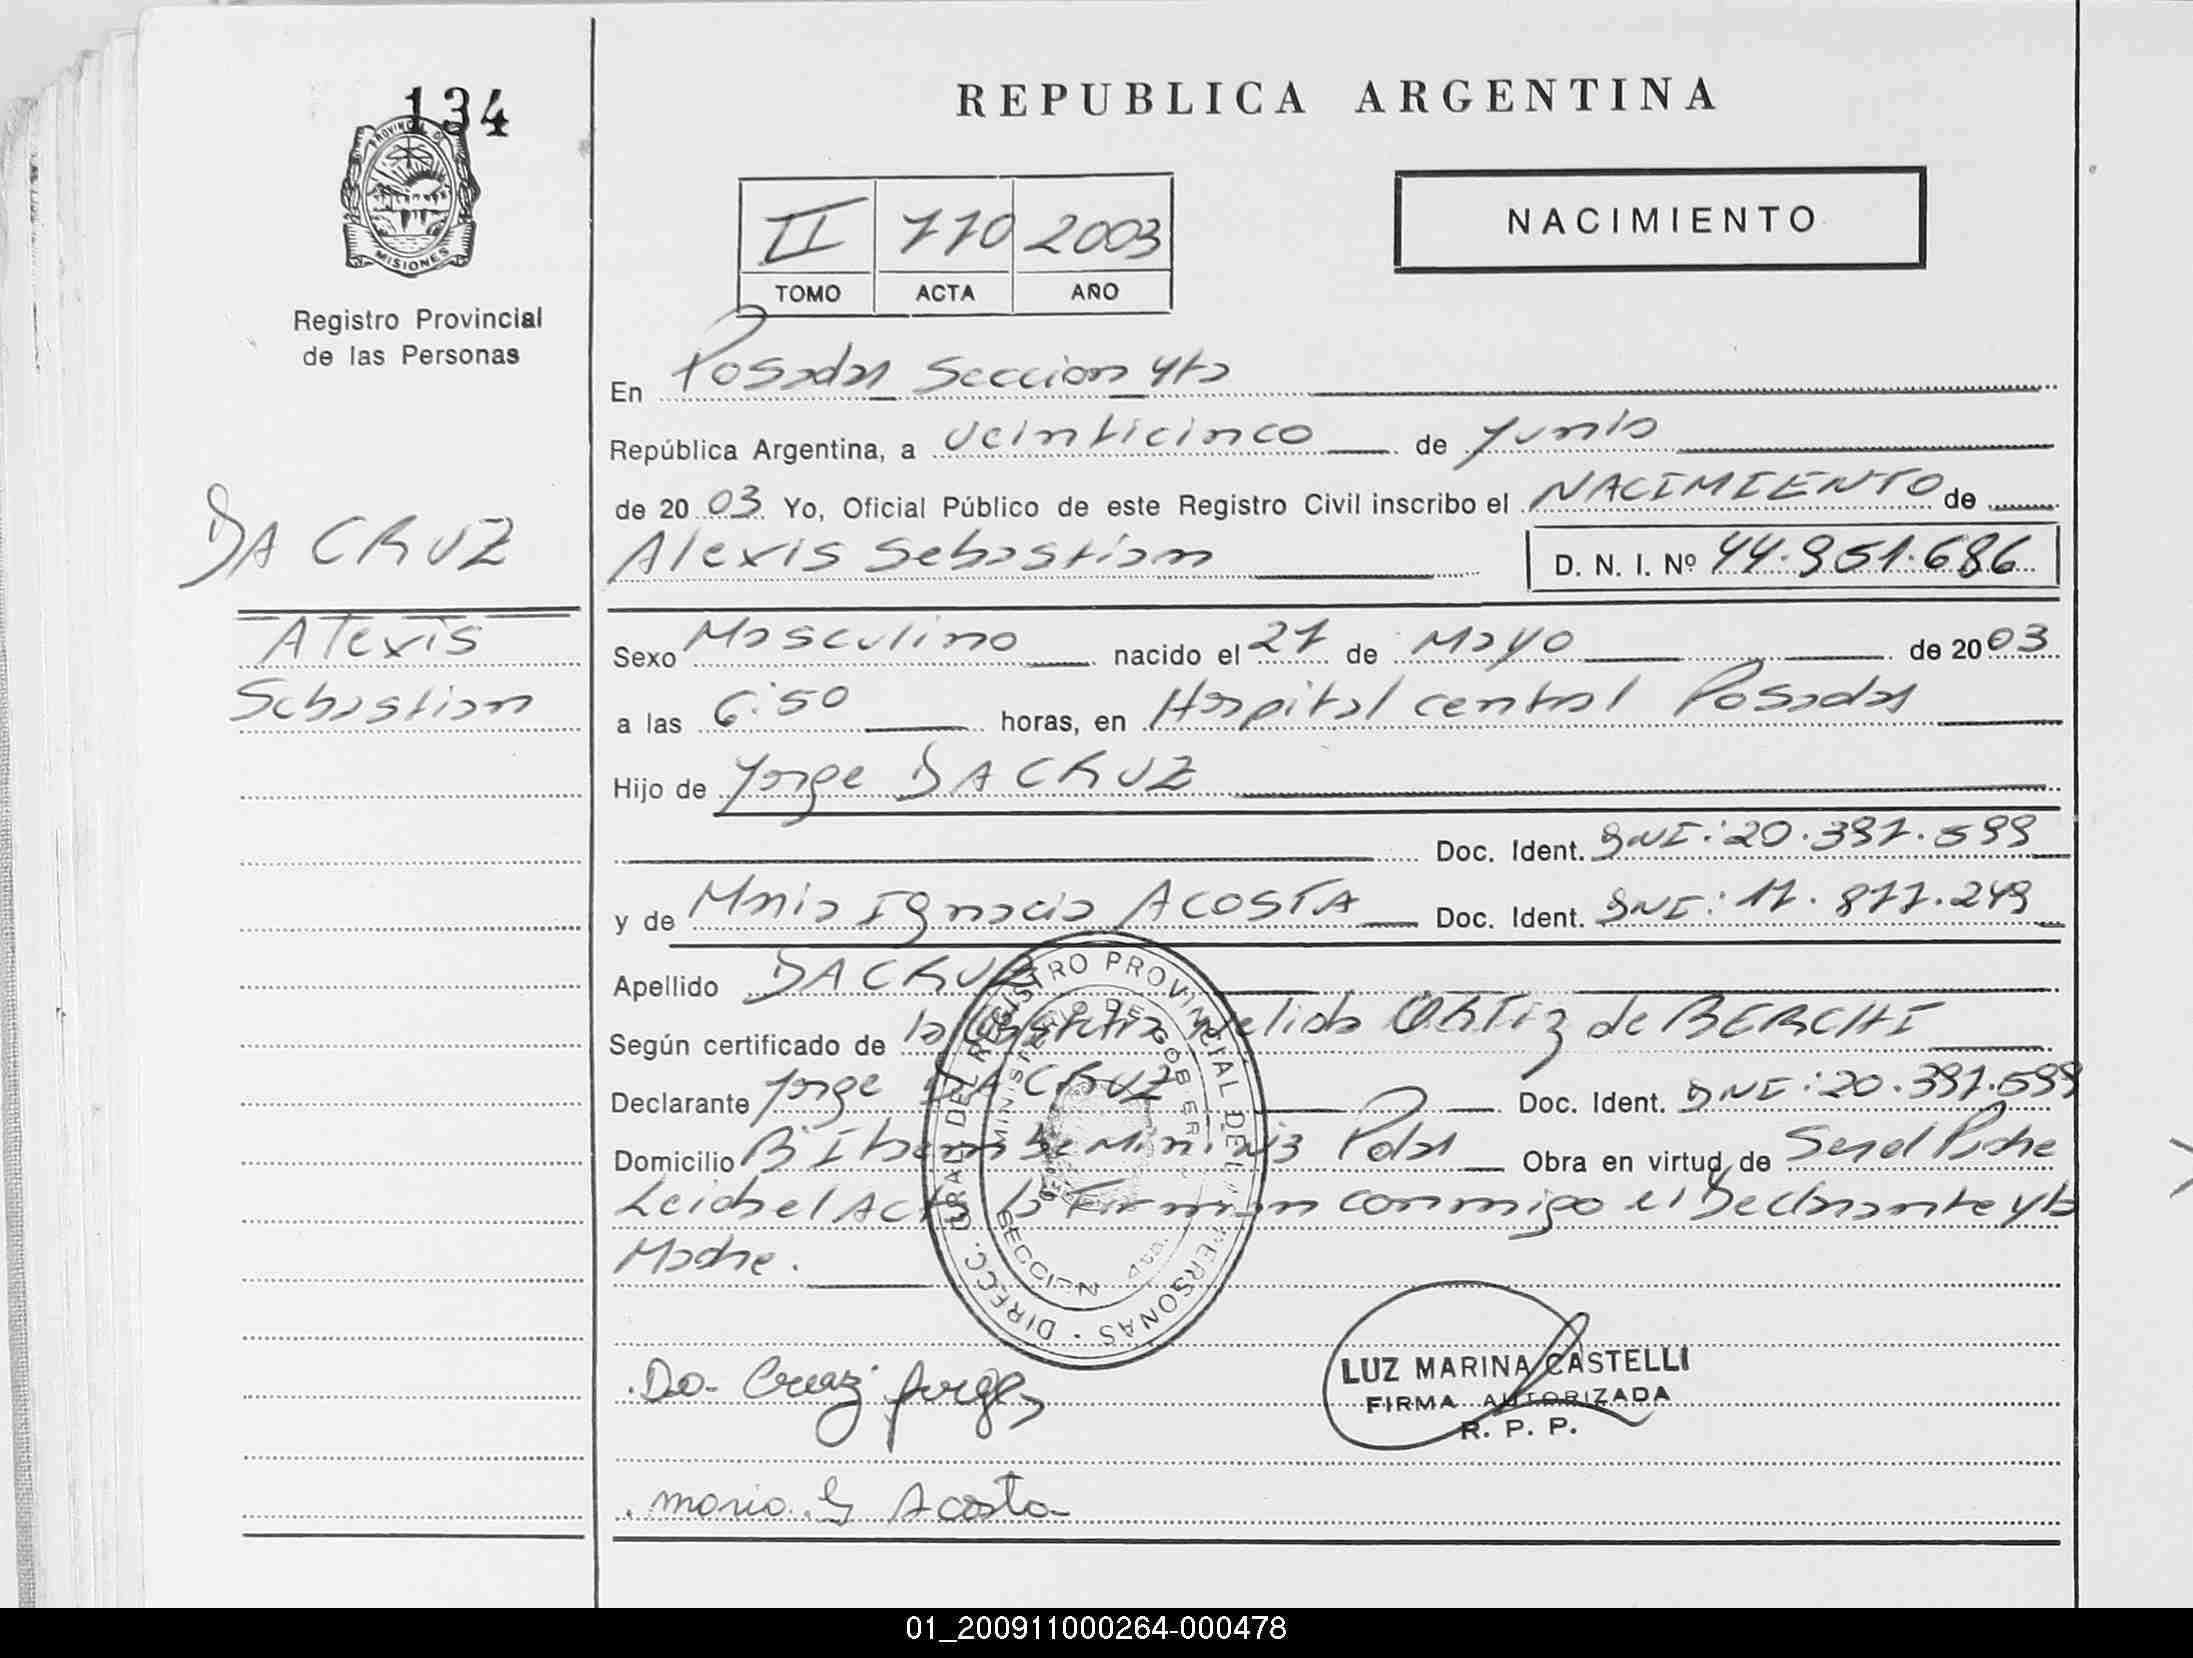 134
PROVINCIA DE
MISIONES
Registro Provincial
de las Personas
DA CRUZ
Alexis
Sebastian
REPUBLICA ARGENTINA
II 770 2003
TOMO ACTA AÑO
NACIMIENTO
En Posadas Seccion 4ta
República Argentina, a veinticinco de Junio
de 2003 Yo, Oficial Público de este Registro Civil inscribo el NACIMIENTO de
Alexis Sebastian D. N. I. Nº
Sexo Masculino nacido el de Mayo de 2003
a las 6:50 horas, en Hospital central Posadas
Hijo de Jorge DA CRUZ
Doc. Ident. DNI:
y de Maria Ignacia ACOSTA Doc. Ident. DNI:
Apellido DA CRUZ
Según certificado de la Obstetra Nelida ORTIZ de BERCHI
Declarante Jorge DA CRUZ Doc. Ident. DNI:
Domicilio B Pdas Obra en virtud de Ser el Padre
Leida el Acta la Firman conmigo el Declarante y la
Madre.
DIRECC. GRAL. DEL REGISTRO PROVINCIAL DE L PERSONAS
MINISTERIO DE GOBIER
SECCION 4ta.
Da Cruz Jorge
LUZ MARINA CASTELLI
FIRMA AUTORIZADA
R. P. P.
Maria Acosta
01_200911000264-000478